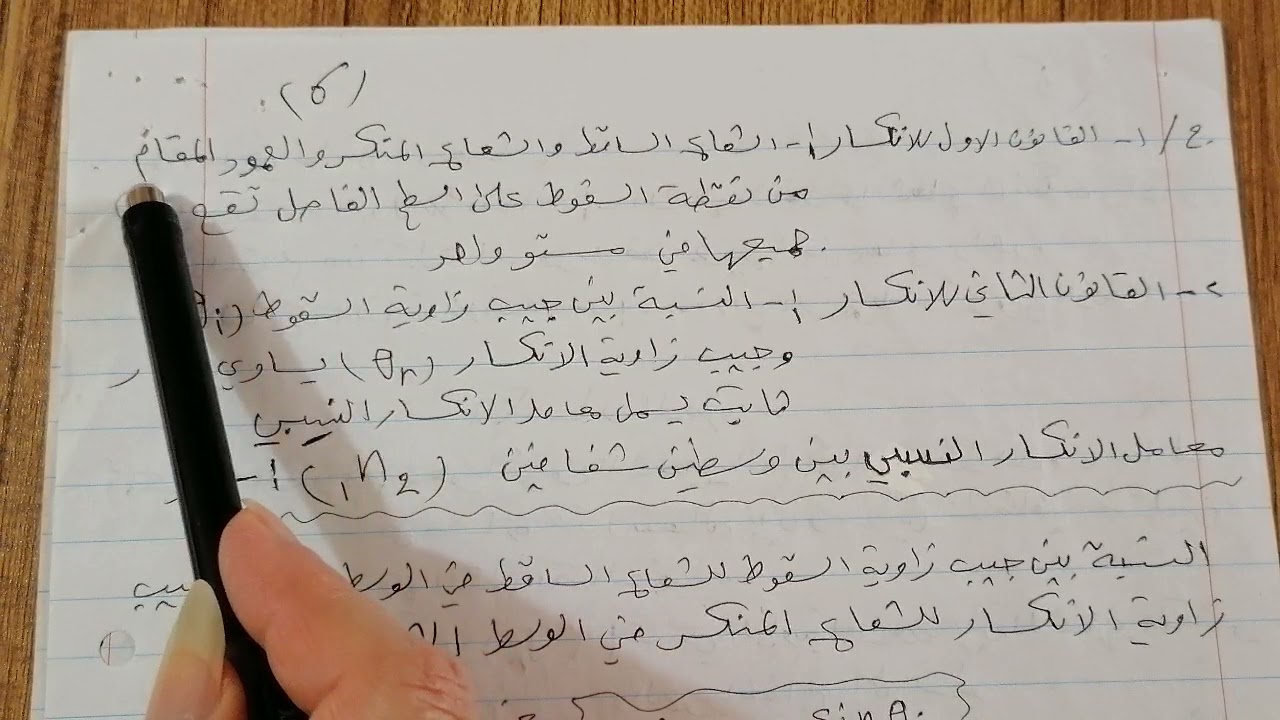 (٦)
ج/ ١- القانون الاول للانكسار :- الشعاع الساقط والشعاع المنكسر والعمود المقام
من نقطة السقوط على السطح الفاصل تقع
جميعها في مستو واحد.
٢- القانون الثاني للانكسار :- النسبة بين جيب زاوية السقوط (θi
وجيب زاوية الانكسار (θr) يساوي
ثابت يسمى معامل الانكسار النسبي
معامل الانكسار النسبي بين وسطين شفافين (1n2) :-
النسبة بين جيب زاوية السقوط للشعاع الساقط في الوسط
زاوية الانكسار للشعاع المنكسر في الوسط
sin θ